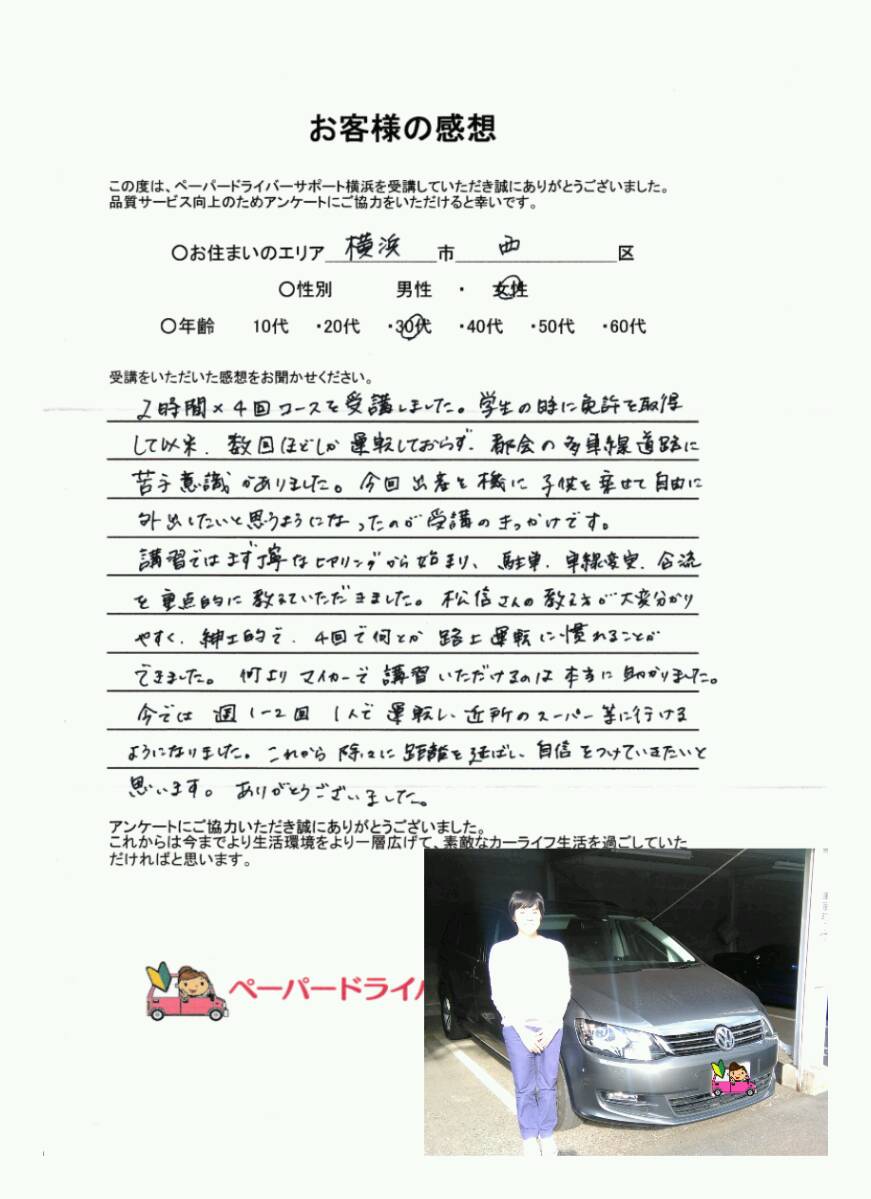 お客様の感想
この度は、ペーパードライバーサポート横浜を受講していただき誠にありがとうございました。
品質サービス向上のためアンケートにご協力をいただけると幸いです。
〇お住まいのエリア 横浜 市 西 区
〇性別 男性 ・ 女性
〇年齢 10代 ・20代 ・30代 ・40代 ・50代 ・60代
受講をいただいた感想をお聞かせください。
2時間×4回コースを受講しました。学生の時に免許を取得
して以来、数回ほどしか運転しておらず、都会の多車線道路に
苦手意識がありました。今回出産を機に子供を乗せて自由に
外出したいと思うようになったのが受講のきっかけです。
講習ではまず丁寧なヒアリングから始まり、駐車、車線変更、合流
を重点的に教えていただきました。松信さんの教え方が大変分かり
やすく、紳士的で、4回で何とか路上運転に慣れることが
できました。何よりマイカーで講習いただけるのは本当に助かりました。
今では週1-2回1人で運転し、近所のスーパー等に行ける
ようになりました。これから除々に距離を延ばし、自信をつけていきたいと
思います。ありがとうございました。
アンケートにご協力いただき誠にありがとうございました。
これからは今までより生活環境をより一層広げて、素敵なカーライフ生活を過ごしていた
だければと思います。
ペーパードライバ